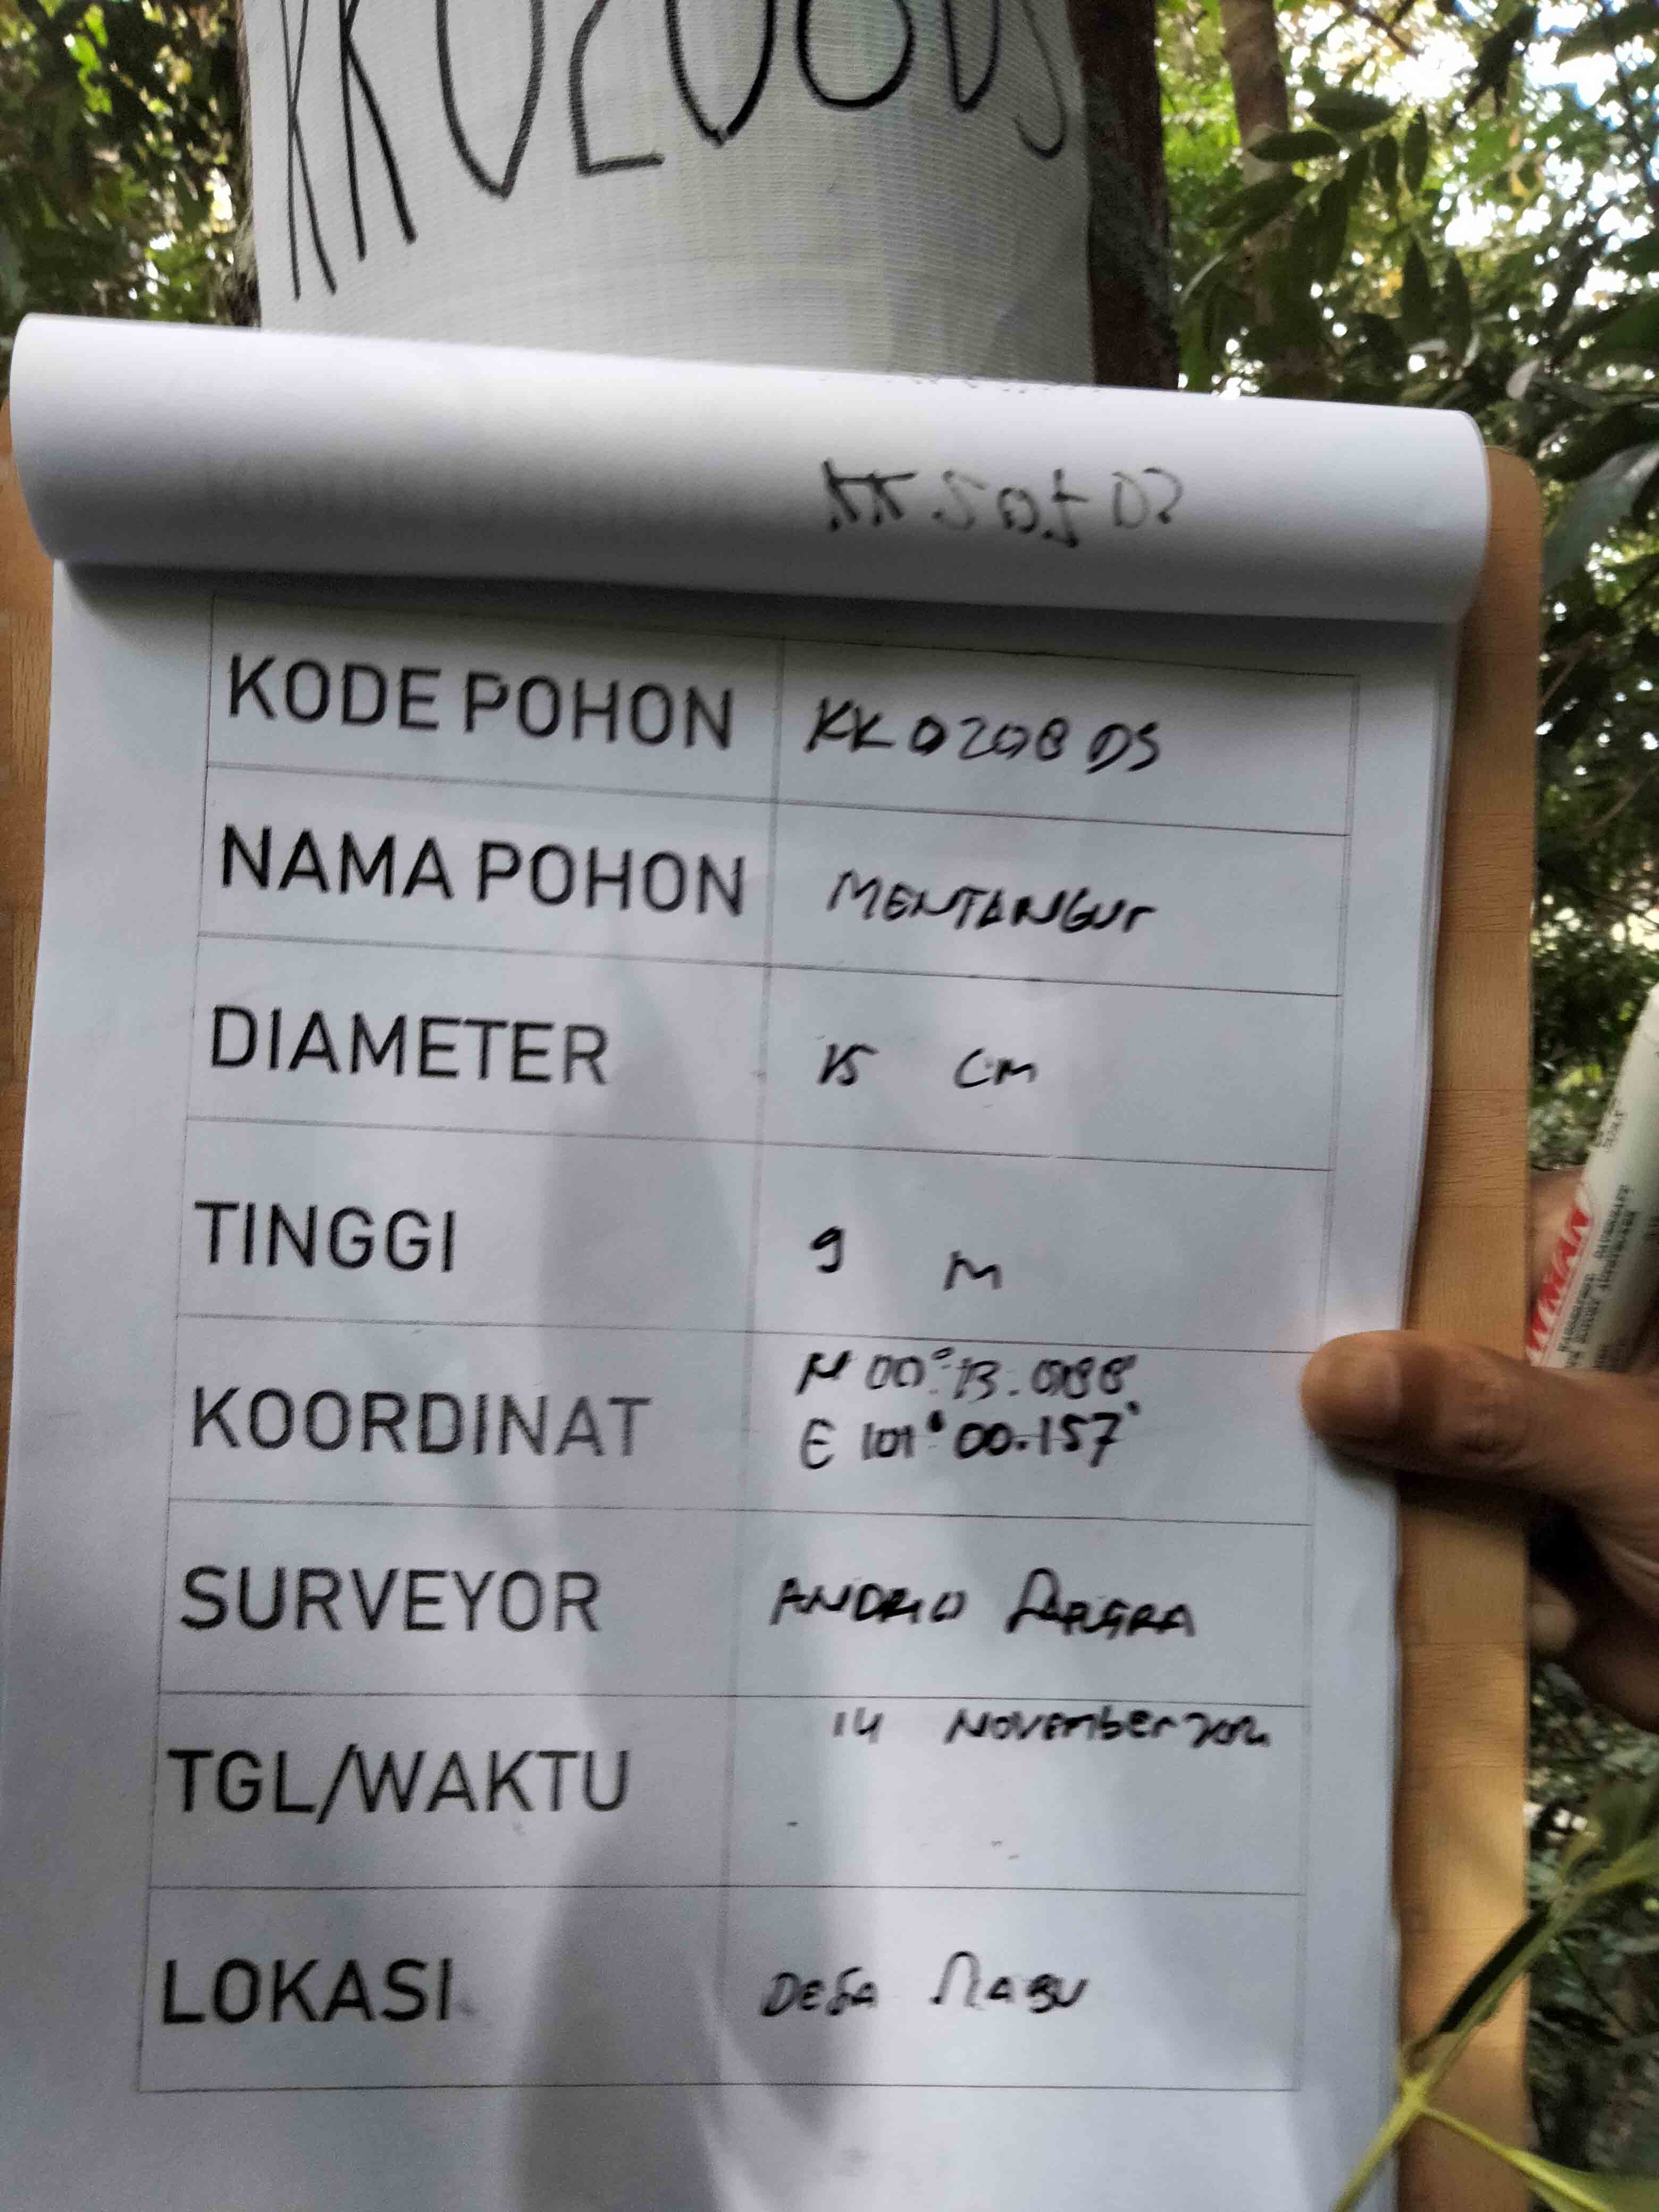 KK0208DS
KODE POHON KK0208DS
NAMA POHON MENTANGUr
DIAMETER 15 CM
TINGGI 9 M
KOORDINAT N 00°.13.088'
E 101°00.157'
SURVEYOR ANDRIO
TGL/WAKTU 14 November
LOKASI DESA